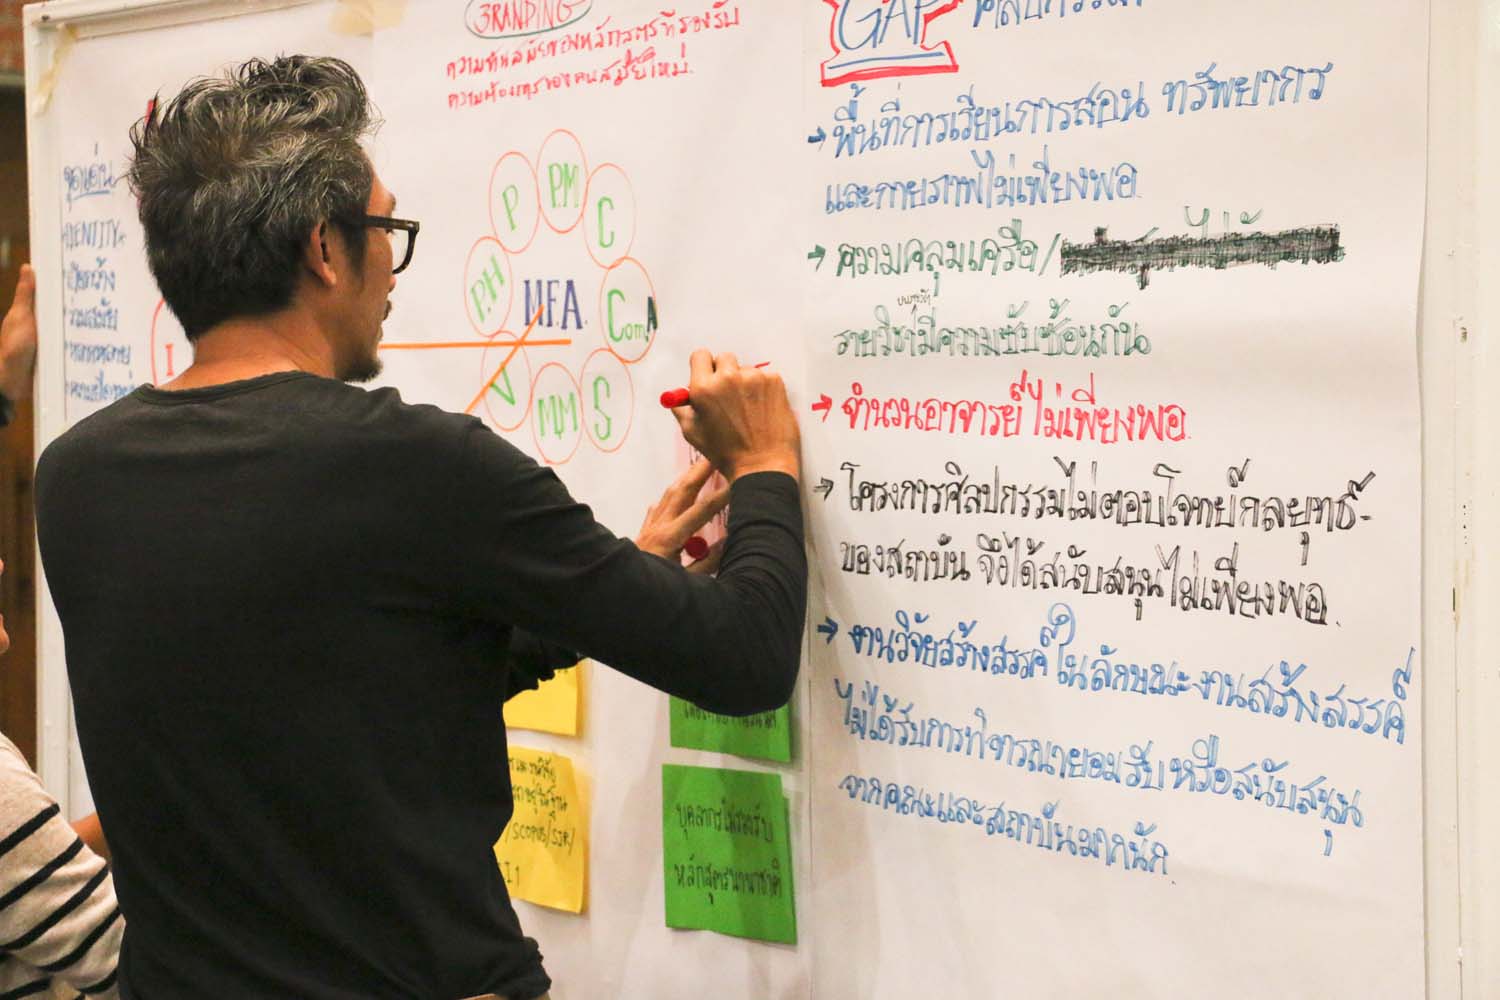 BRANDING
ความทันสมัยของหลักสูตรที่รองรับ
ความต้องการของคนสมัยใหม่.
จุดเด่น
IDENTITY
ร่วมสมัย
I
P
P.M
C
P.H
M.F.A.
Com.A
V
M.M
S
/SCOPUS/SJR/
บุคลากรไม่รองรับ
หลักสูตรนานาชาติ
GAP
→ พื้นที่การเรียนการสอน ทรัพยากร
และกายภาพไม่เพียงพอ.
→ ความคลุมเครือ/
รายวิชามีความซับซ้อนกัน
→ จำนวนอาจารย์ไม่เพียงพอ.
→ โครงการศิลปกรรมไม่ตอบโจทย์กลยุทธ์-
ของสถาบัน จึงได้สนับสนุนไม่เพียงพอ.
→ งานวิจัยสร้างสรรค์ในลักษณะงานสร้างสรรค์
ไม่ได้รับการพิจารณายอมรับ หรือสนับสนุน
จากคณะและสถาบันมากนัก.